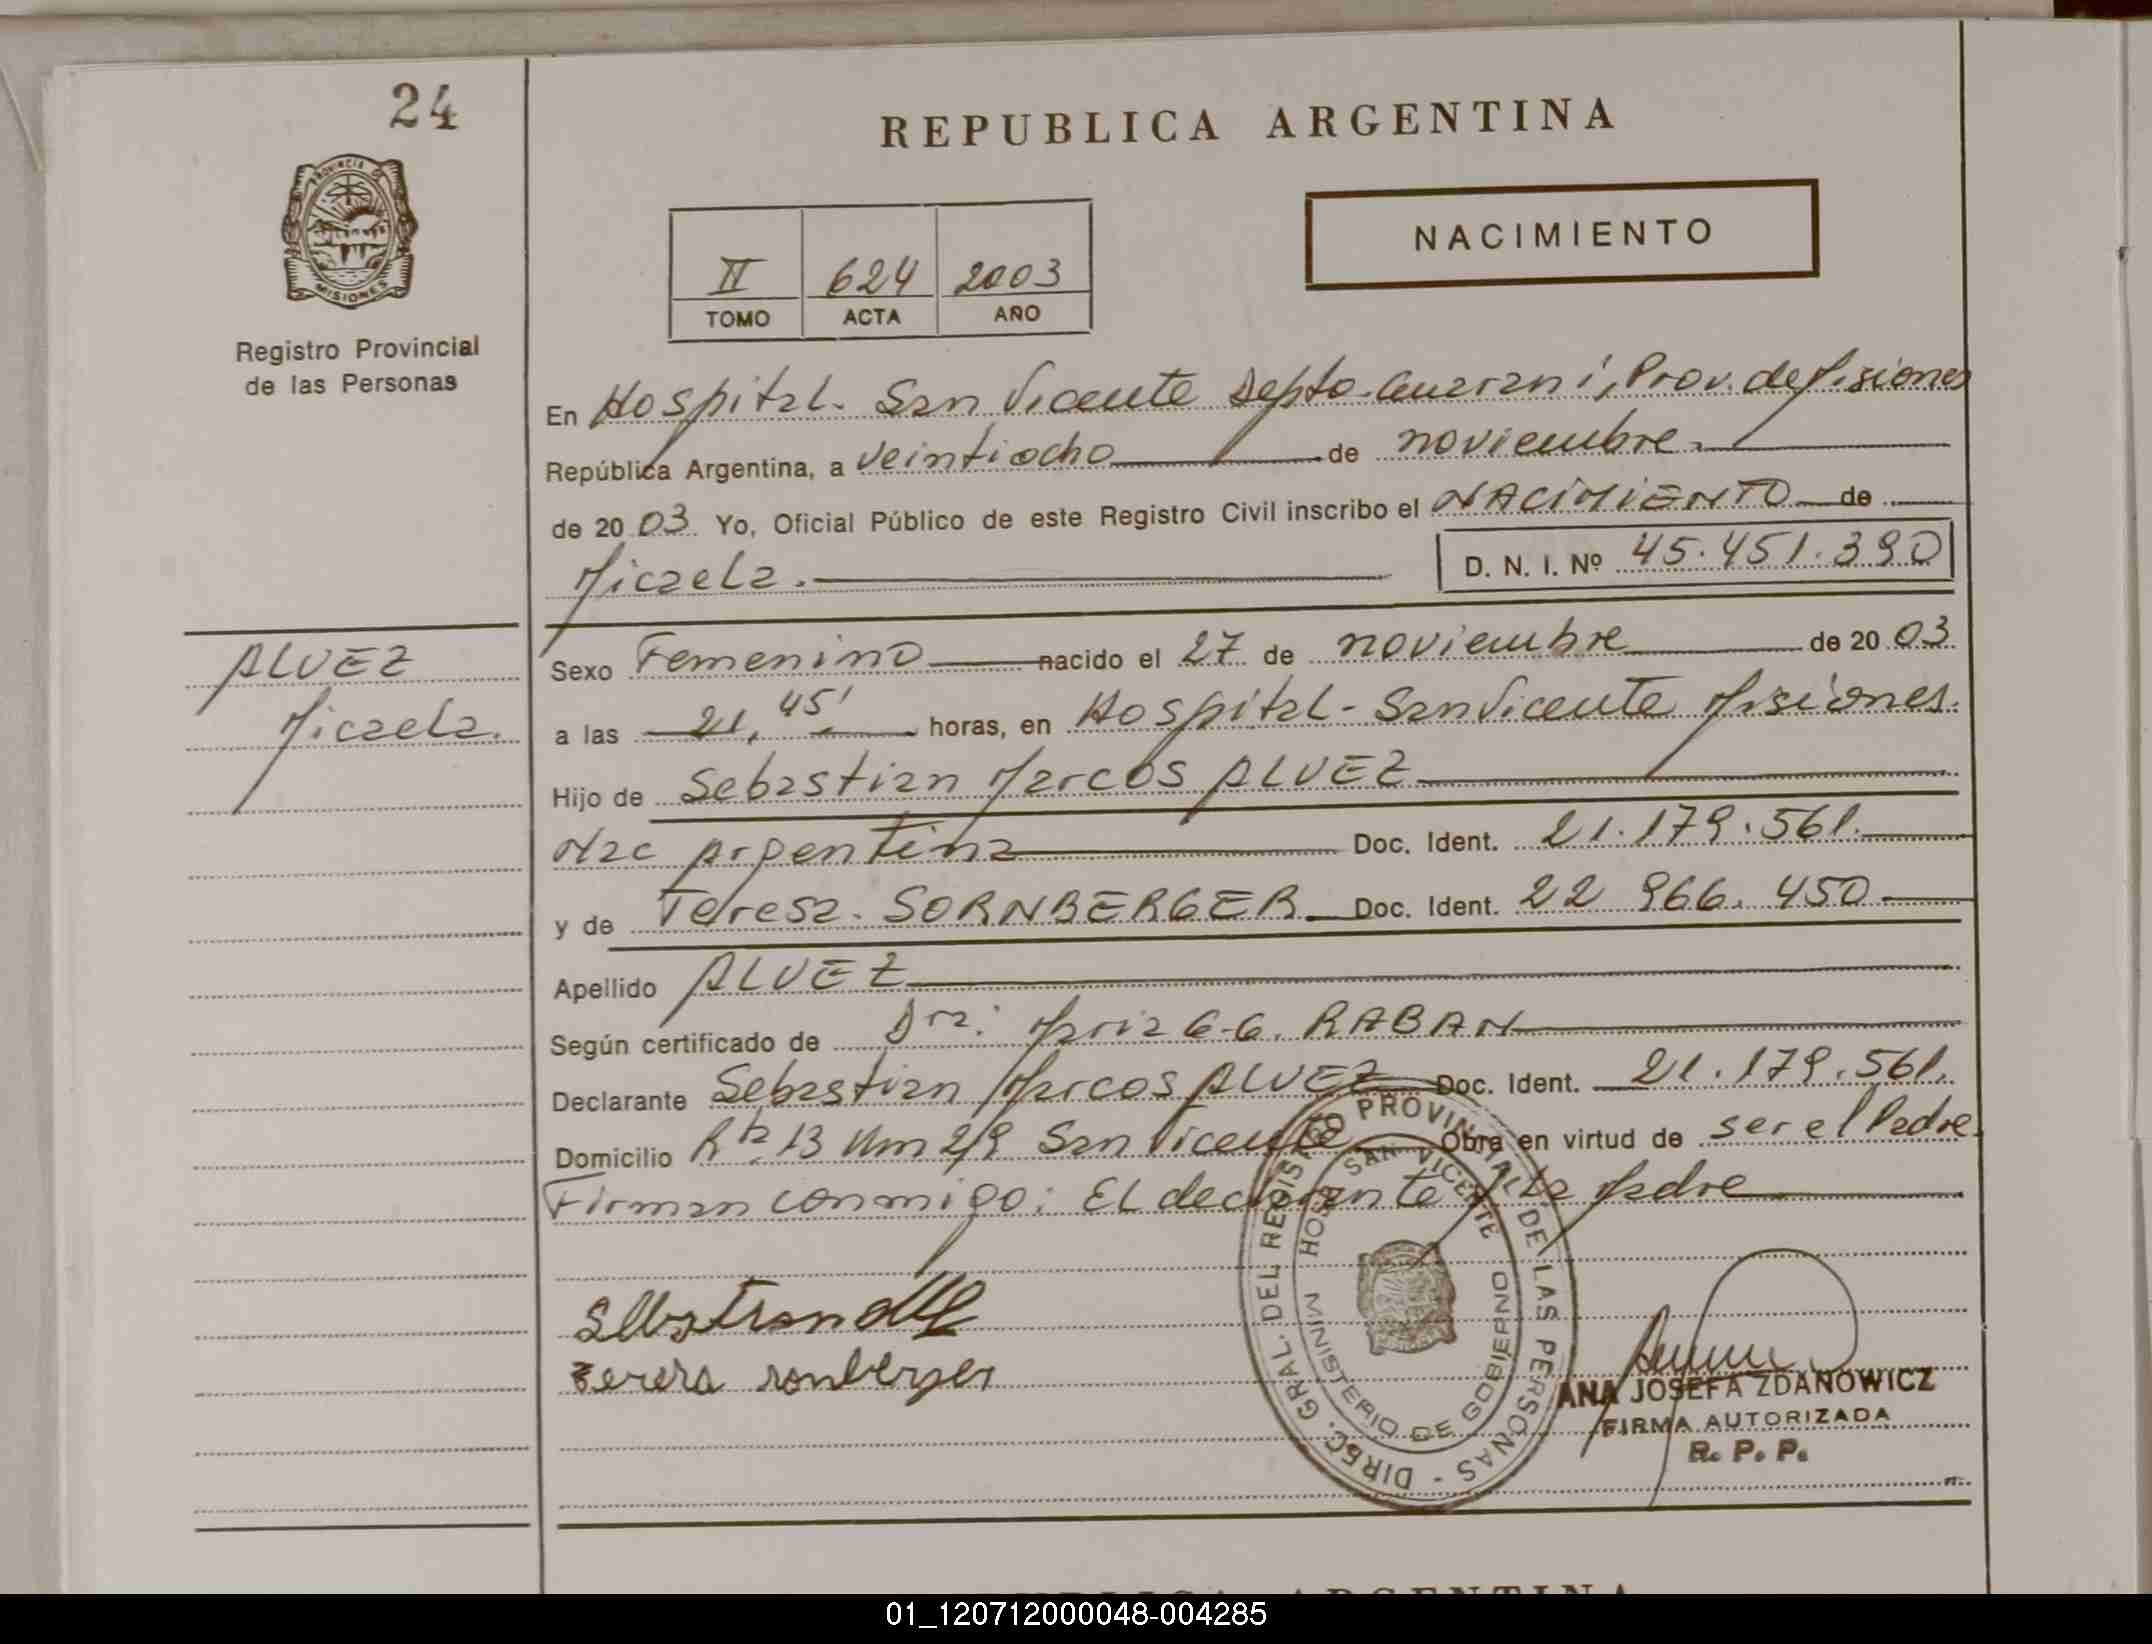 24
REPUBLICA ARGENTINA
PROVINCIA DE MISIONES
NACIMIENTO
II 624 2003
TOMO ACTA AÑO
Registro Provincial
de las Personas
En Hospital. San Vicente Depto. Guarani, Prov. de Misiones
República Argentina, a veintiocho de noviembre.
de 2003. Yo, Oficial Público de este Registro Civil inscribo el NACIMIENTO de
Micaela. D. N. I. Nº 45.451.390
ALVEZ
Micaela.
Sexo Femenino nacido el 27 de noviembre de 2003.
a las 21,45' horas, en Hospital - San Vicente Misiones.
Hijo de Sebastian Marcos ALVEZ
Nac Argentina Doc. Ident. 21.179.561.
y de Teresa. SORNBERGER Doc. Ident. 22 966.450
Apellido ALVEZ
Según certificado de Dra: Maria G. G. RABAN
Declarante Sebastian Marcos ALVEZ Doc. Ident. 21.179.561.
Domicilio Rta 13 Km 2/9 San Vicente Obra en virtud de ser el Padre.
Firman conmigo: El declarante y la Madre
DIREC. GRAL. DEL REGISTRO PROVINCIAL DE LAS PERSONAS -
HOSP. SAN VICENTE
MINISTERIO DE GOBIERNO
ANA JOSEFA ZDANOWICZ
FIRMA AUTORIZADA
R. P. P.
REPUBLICA ARGENTINA
01_120712000048-004285